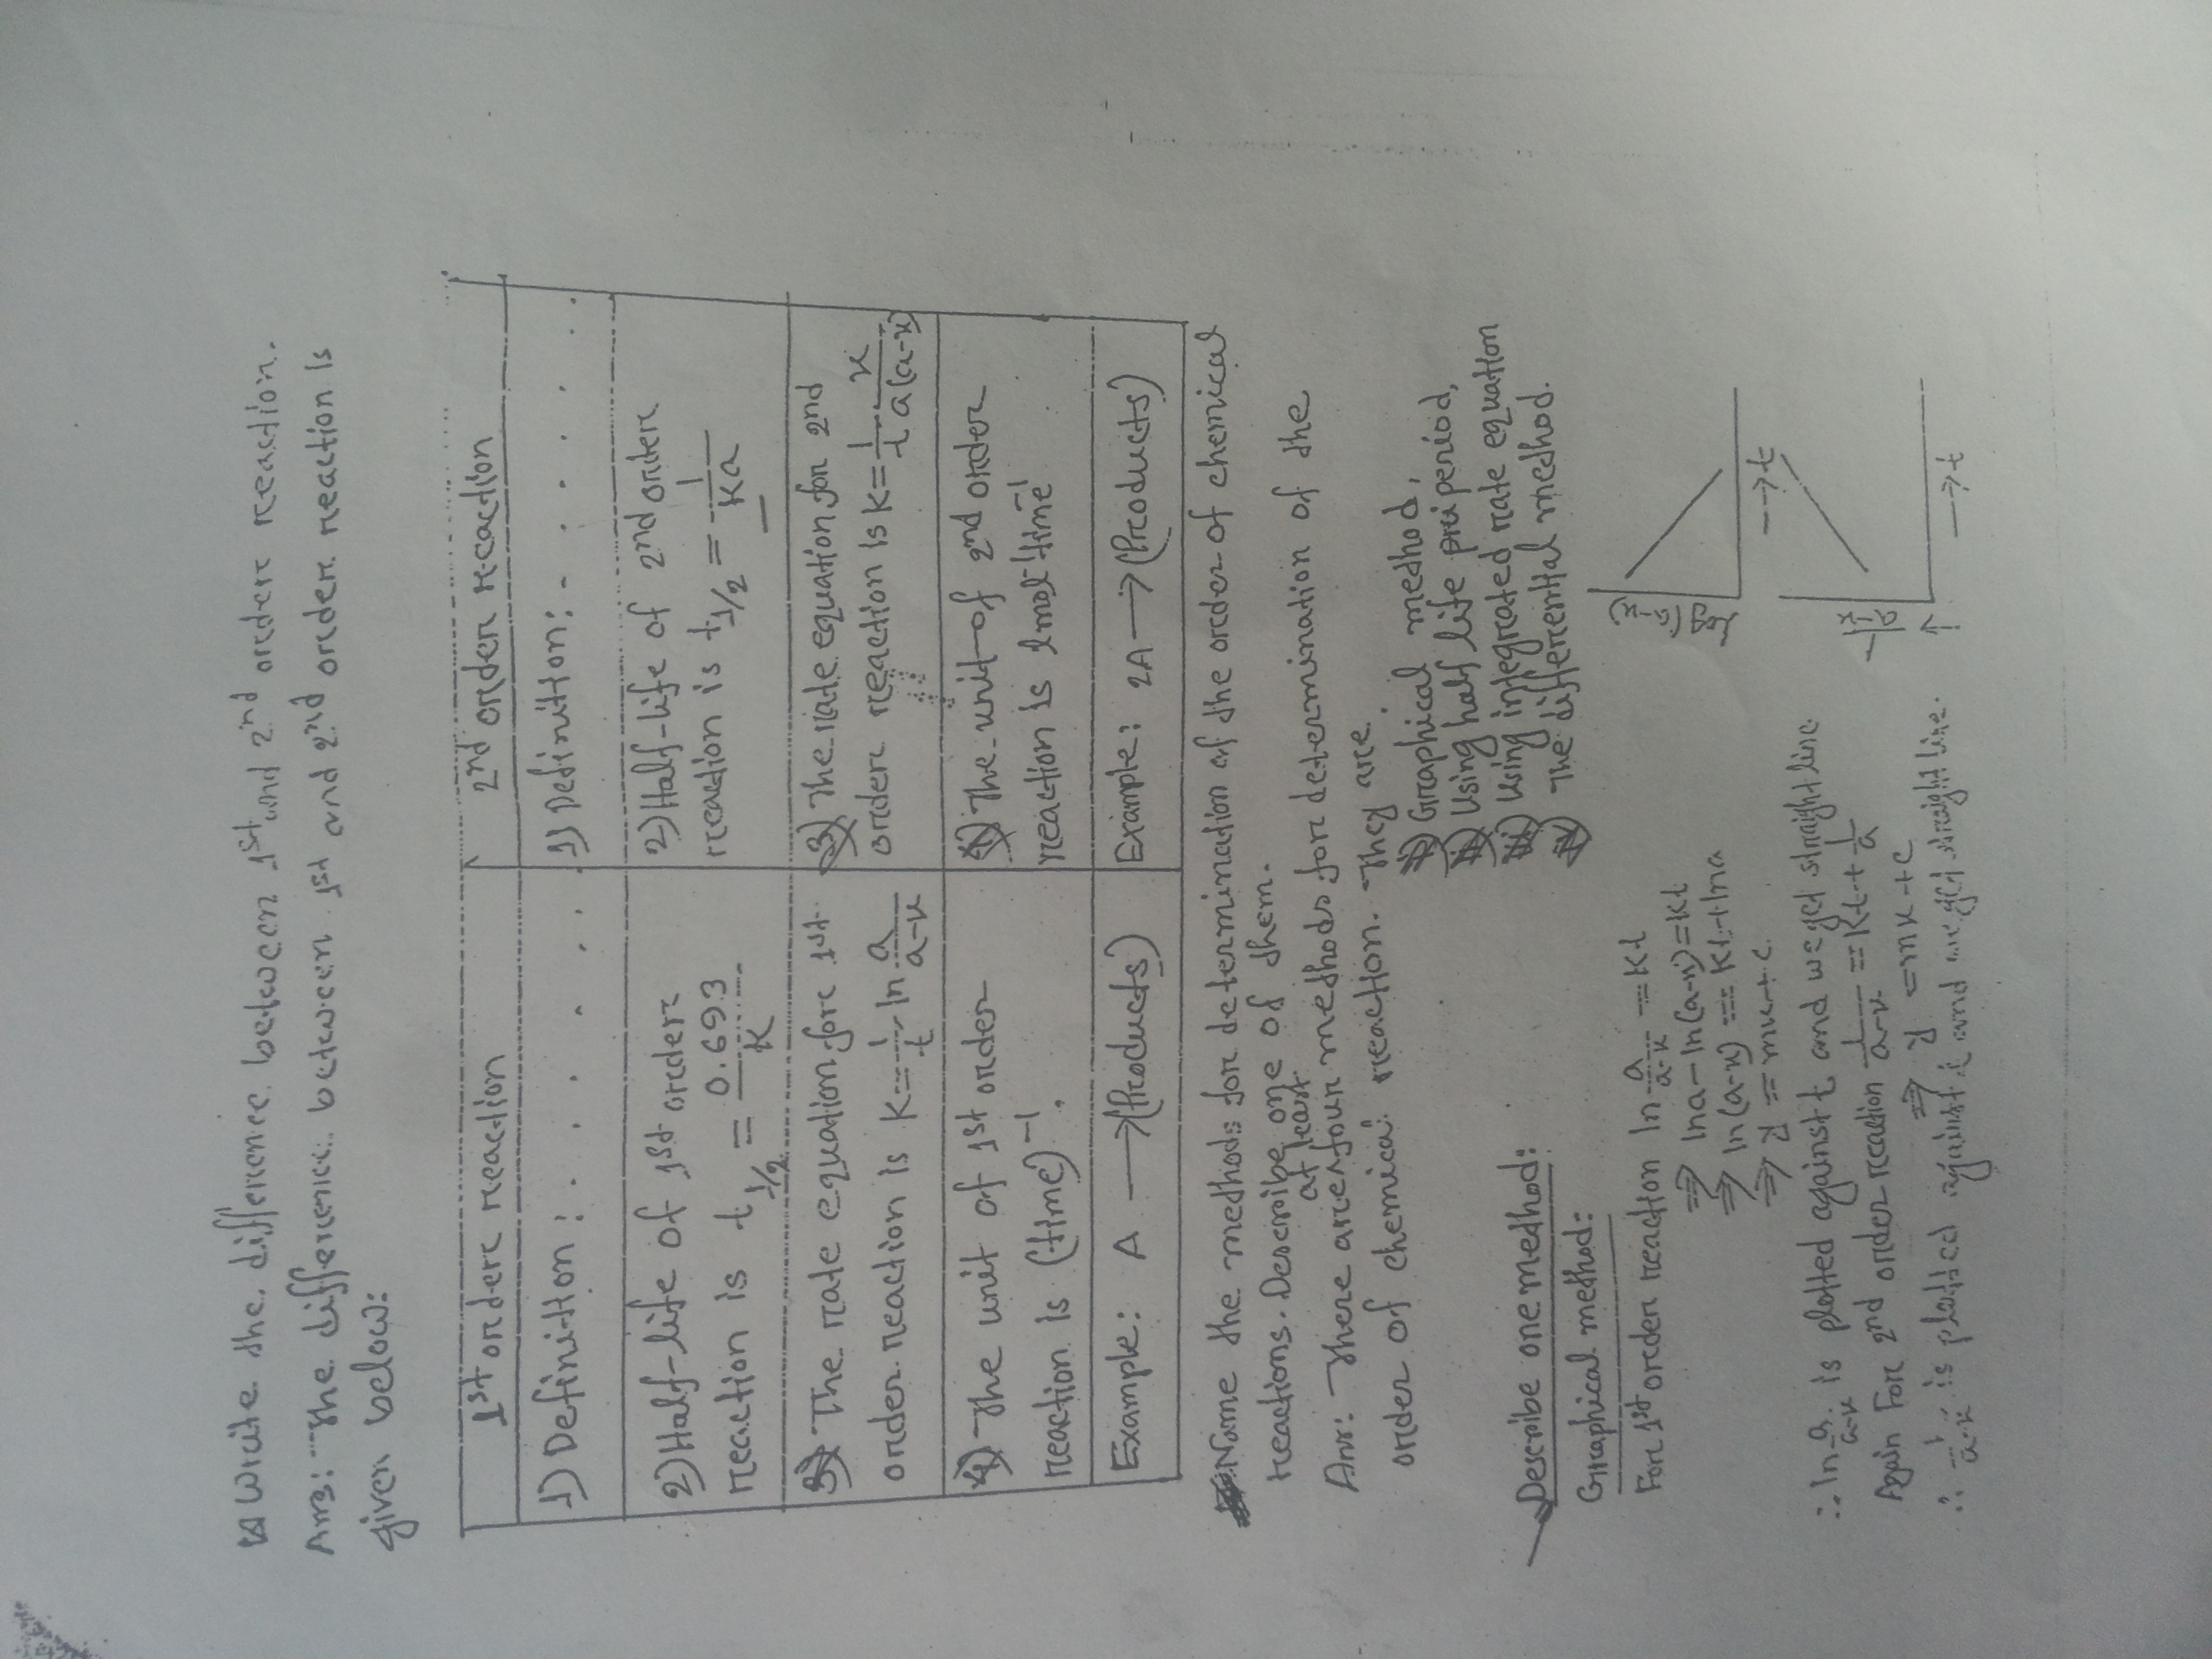 Write the difference between 1st and 2nd order reaction.
Ans: The difference between 1st and 2nd order reaction is
given below:
1st order reaction
2nd order reaction
1) Definition : . . . . . . .
1) Definition: . . . . . . .
2) Half-life of 1st order
reaction is t1/2 = 0.693/K
2) Half-life of 2nd order
reaction is t1/2 = 1/Ka
3) The rate equation for 1st
order reaction is K = 1/t ln a/a-x
3) The rate equation for 2nd
order reaction is K = 1/t x/a(a-x)
4) The unit of 1st order
reaction is (time)⁻¹.
4) The unit of 2nd order
reaction is l mol⁻¹ time⁻¹
Example: A → (Products)
Example: 2A → (Products)
Name the methods for determination of the order of chemical
reactions. Describe one of them.
at least
Ans: There are four methods for determination of the
order of chemical reaction. They are
i) Graphical method,
ii) Using half life pri period,
iii) Using integrated rate equation
iv) The differential method.
Describe one method:
Graphical method:
For 1st order reaction ln a/a-x = Kt
⇒ lna - ln(a-x) = Kt
⇒ ln(a-x) = -Kt + lna
⇒ y = mx + c
∴ ln a/a-x is plotted against t and we get straight line.
Again For 2nd order reaction 1/a-x = Kt + 1/a
⇒ y = mx + c
∴ 1/a-x is plotted against t and we get straight line.
log(a-x)
→ t
1/a-x
→ t